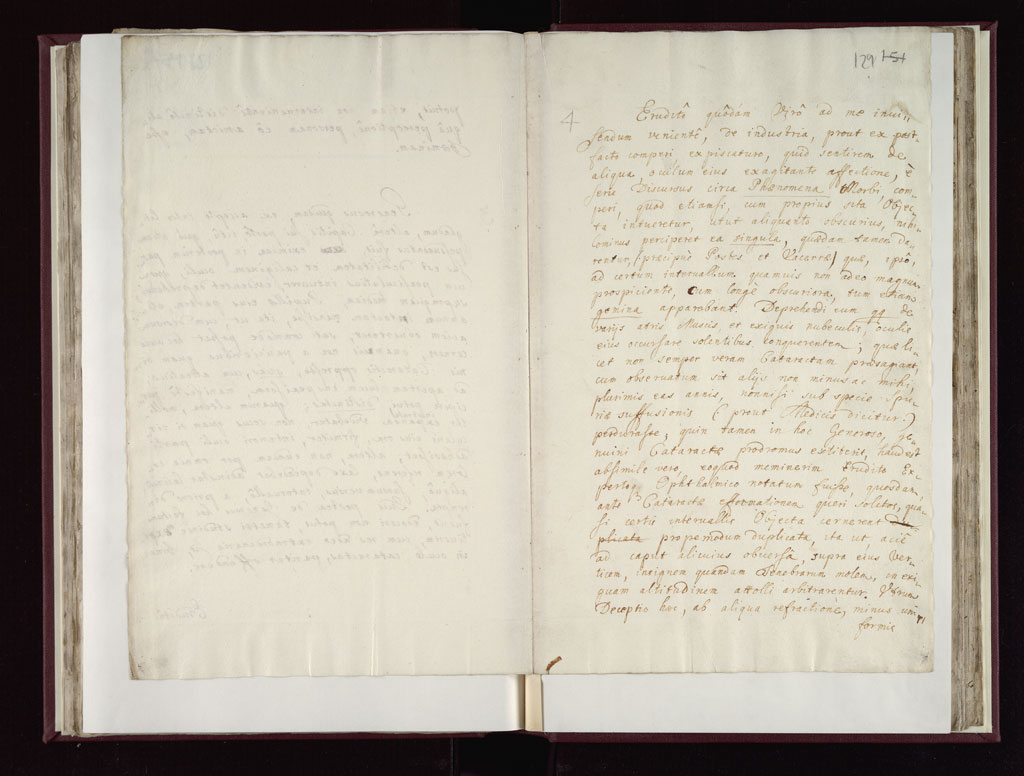 129 151
4
Eruditô quôdam Virô ad me invi„
sendum venientê, de industria, prout ex post„
facto comperi expiscaturo, quid sentirem de
aliqua, oculum eius exagitante affectione, è
serie Discursus circa Phænomena Morbi, com„
peri quod etiamsi, cum propius sita Objec„
ta intueretur, utut aliquanto obscurius, nihi„
lominus perciperet ea singula, quædam tamen da„
rentur, (præcipuè Postes et Vacerræ) quæ, ipsô,
ad certum intervallum quamuis non adeo magnum
prospiciente, cum longè obscuriora, tum etiam
gemina apparebant. Deprehendi eum qq de
varijs atris Muscis, et exiguis nubeculis, oculis
eius occursare solentibus conquerentem; quæ li„
cet non semper veram Cataractam præsagiant,
cum observatum sit alijs non minus ac mihi,
plurimis eas annis, nonnisi sub specie spu„
riæ suffusionis (prout Medicis dicitur)
perdurasse; quin tamen in hoc Generoso, ge„
nuini Cataractæ prodromus extiterit, haud est
absimile vero, eoquod meminerim Erudito Ex„
pertoq Ophthalmico notatum fuisse, quosdam,
ante Cataractæ efformationem queri solitos, qua„
si certis intervallis Objecta cernerent
plicata propemodum duplicata, ita ut aciê
ad caput alicuius obversâ, supra eius Ver„
ticem, insignem quandam Tenebrarum molem, in exi„
guam altitudinem attolli arbitrarentur. Utrum
Deceptio hæc, ab aliqua refractione, minus uni„
formis